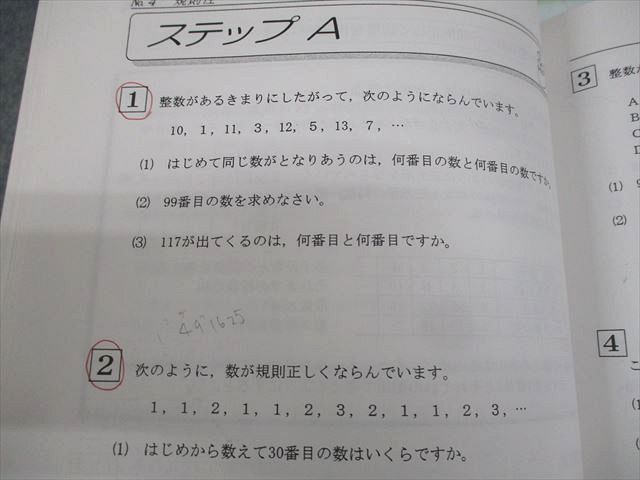 №4 規則性
ステップA
1 整数があるきまりにしたがって，次のようにならんでいます。
10，1，11，3，12，5，13，7，…
(1) はじめて同じ数がとなりあうのは，何番目の数と何番目の数ですか。
(2) 99番目の数を求めなさい。
(3) 117が出てくるのは，何番目と何番目ですか。
1 4 9 16 25
2 次のように，数が規則正しくならんでいます。
1，1，2，1，1，2，3，2，1，1，2，3，…
(1) はじめから数えて30番目の数はいくらですか。
3 整数が
A
B
C
(1)
(2)
4
こ
(1